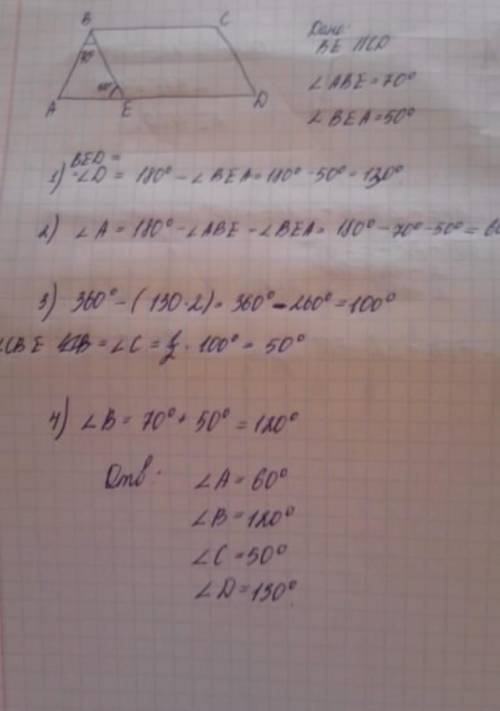 B C
70° 50°
A E D
Дано:
BE || CD
∠ABE = 70°
∠BEA = 50°
BED =
1) ∠D = 180° - ∠BEA = 180° - 50° = 130°
2) ∠A = 180° - ∠ABE - ∠BEA = 180° - 70° - 50° = 60
3) 360° - (130·2) = 360° - 260° = 100°
∠CBE = ∠C = 1/2 · 100° = 50°
4) ∠B = 70° + 50° = 120°
Отв. ∠A = 60°
∠B = 120°
∠C = 50°
∠D = 130°